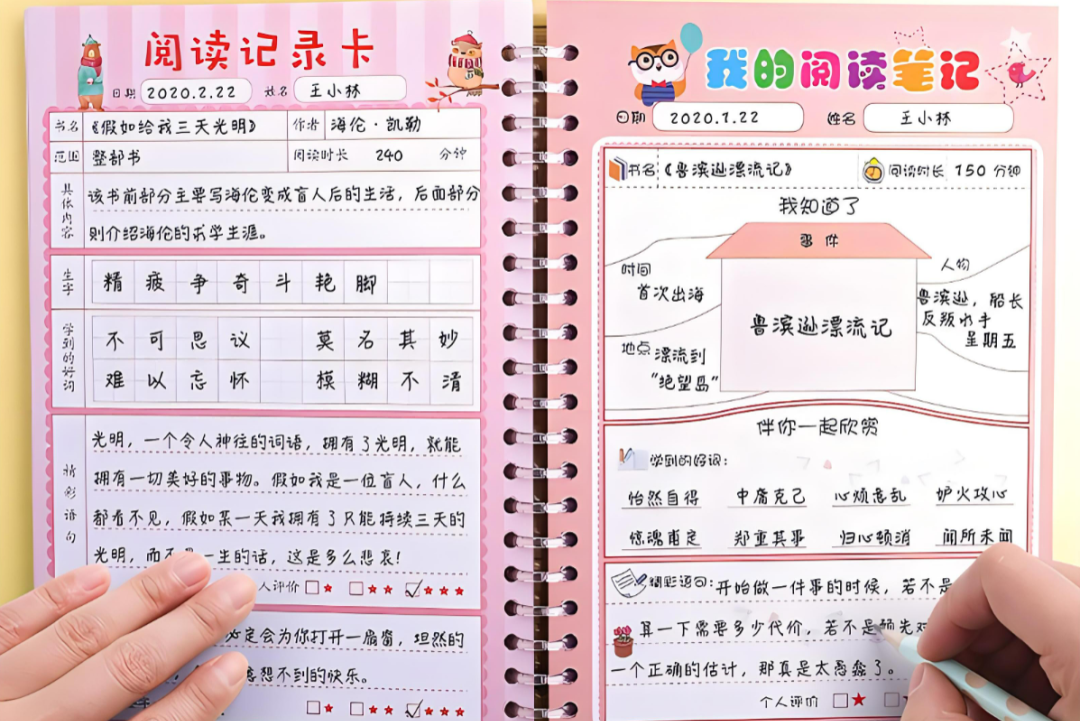 阅读记录卡
日期 2020.2.22 姓名 王小林
书名 《假如给我三天光明》 作者 海伦·凯勒
范围 整部书 阅读时长 240 分钟
具体内容
该书前部分主要写海伦变成盲人后的生活，后面部分
则介绍海伦的求学生涯。
生字
精 疲 争 奇 斗 艳 脚
学到的好词
不 可 思 议 莫 名 其 妙
难 以 忘 怀 模 糊 不 清
精彩语句
光明，一个令人神往的词语，拥有了光明，就能
拥有一切美好的事物。假如我是一位盲人，什么
都看不见，假如某一天我拥有了只能持续三天的
光明，而不是一生的话，这是多么悲哀！
人评价 ★ ★★ ★★★
定会为你打开一扇窗，坦然的
想不到的快乐。
★ ★★ ★★★
我的阅读笔记
日期 2020.1.22 姓名 王小林
书名 《鲁滨逊漂流记》 阅读时长 150 分钟
我知道了
事件
时间
首次出海
人物
鲁滨逊，船长
反叛水手
星期五
鲁滨逊漂流记
地点 漂流到
“绝望岛”
伴你一起欣赏
学到的好词：
怡然自得 中庸克己 心烦意乱 妒火攻心
惊魂甫定 郑重其事 归心顿消 闻所未闻
精彩语句：开始做一件事的时候，若不是
算一下需要多少代价，若不是预先对
一个正确的估计，那真是太愚蠢了。
个人评价 ★